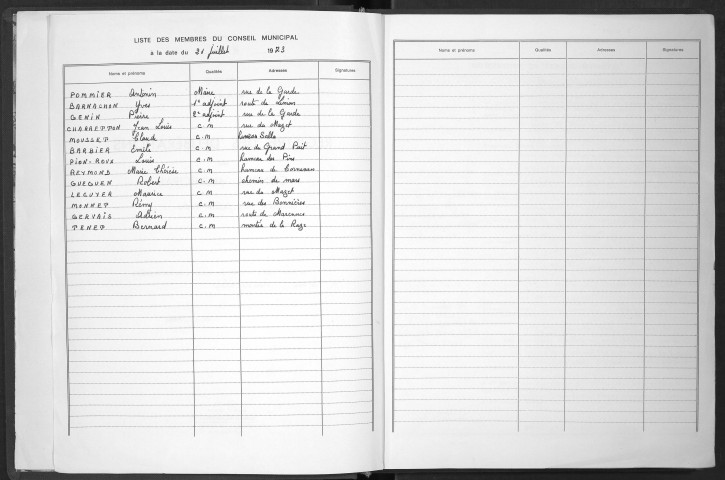 LISTE DES MEMBRES DU CONSEIL MUNICIPAL
à la date du 21 juillet 1973
Noms et prénoms Qualités Adresses Signatures
POMMIER Antonin Maire rue de la Garde
BARNACHON Yves 1e adjoint route de Simian
GENIN Pierre 2e adjoint rue de la Garde
CHARRETTON Jean Louis c.m rue du Mazet
MOUSSET Claude c.m
BARBIER Emile c.m rue du Grand Puit
PION-ROUX Louis c.m hameau des Pins
REYMOND Marie Thérèse c.m hameau de
GUEGUEN Robert c.m chemin de mars
LECUYER Maurice c.m rue du Mazet
MONNET Rémy c.m rue des Bonnières
GERVAIS Adrien c.m route de Marennes
TENET Bernard c.m montée de la Raze
Noms et prénoms Qualités Adresses Signatures